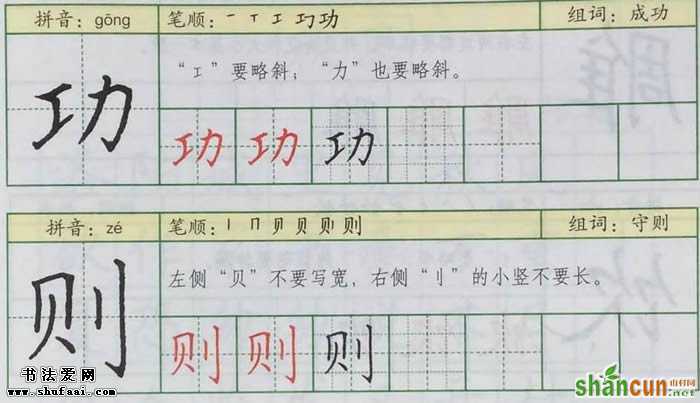 拼音：gōng 笔顺：一 丅 工 巧 功 组词：成功
功
“工”要略斜；“力”也要略斜。
功 功 功
拼音：zé 笔顺：丨 冂 贝 贝 则 则 组词：守则
则
左侧“贝”不要写宽，右侧“刂”的小竖不要长。
则 则 则
书法爱网
www.shufaai.com
shancun
山村网
.net